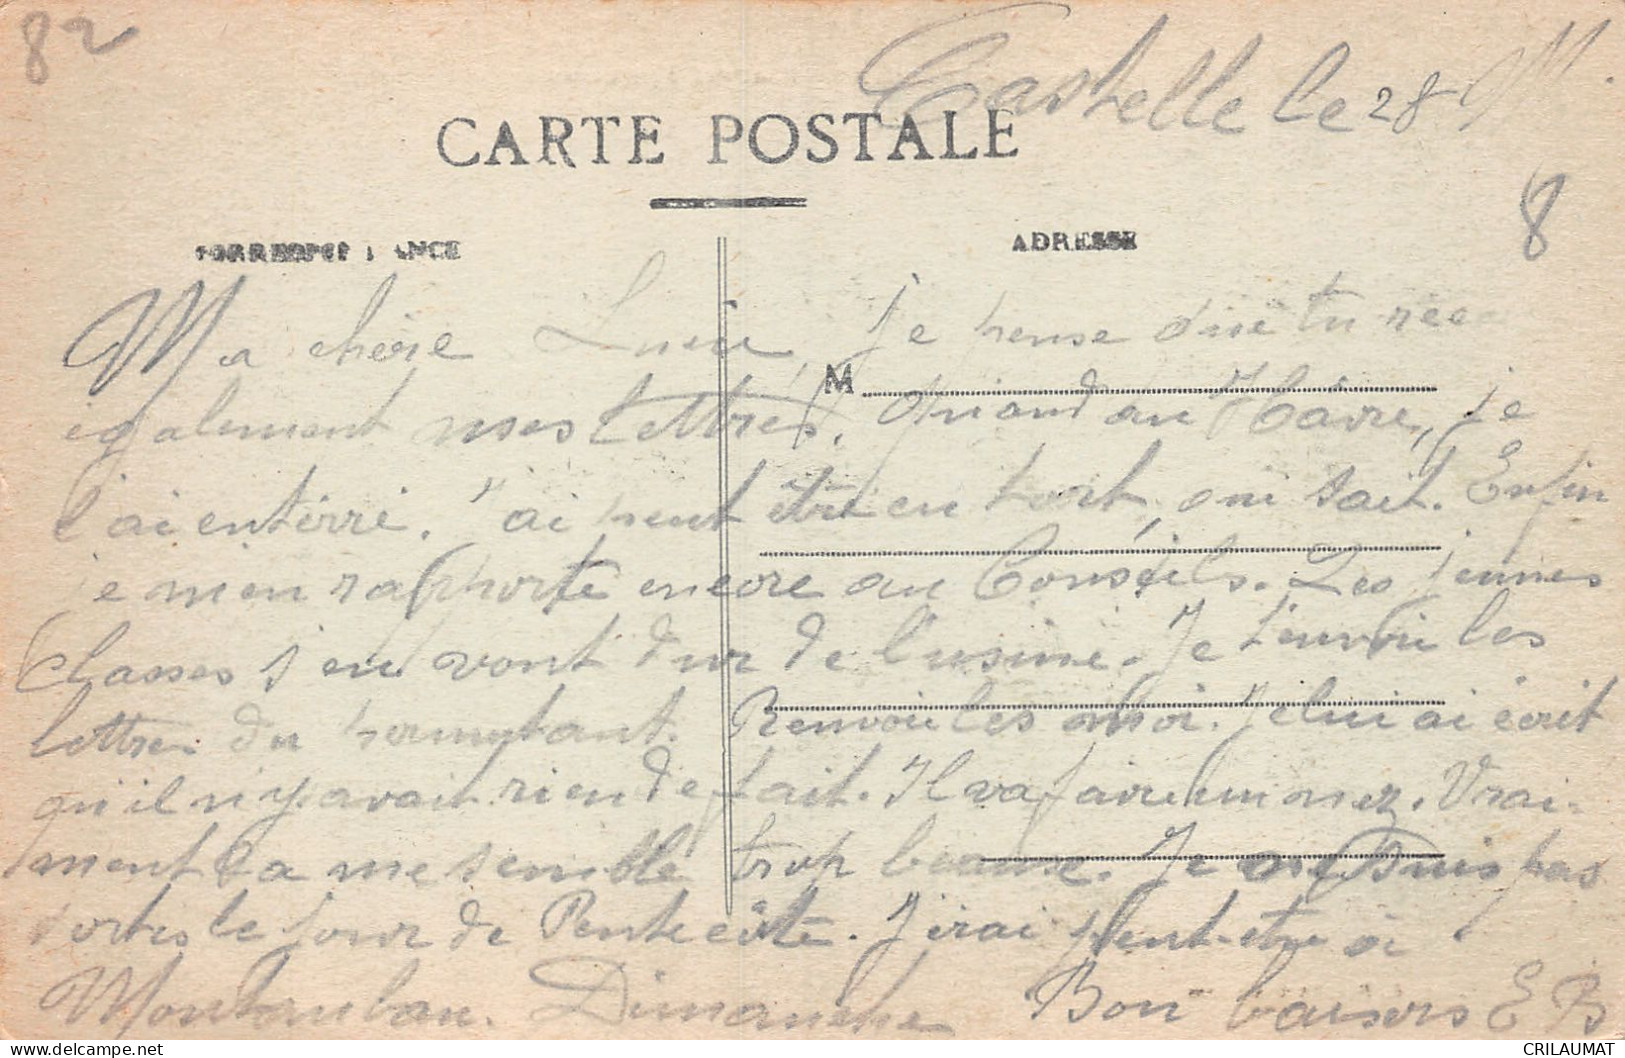 82
Castelle le 28 M
CARTE POSTALE
8
CORRESPONDANCE
ADRESSE
Ma chère Lucie, je pense que tu rec
M
également mes lettres. Quand au Hâvre, je
l'ai enterré. J'ai peut être eu tort, qui sait. Enfin
je m'en rapporte encore au Conseils. Les jeunes
classes s'en vont dur de l'usine. Je t'envoie les
lettres du permutant. Renvoie les moi. Je lui ai écrit
qu'il n'y avait rien de fait. Il va faire un nez. Vrai-
ment ça me semble trop beau. Je ne suis pas
sortis le jour de Pentecôte. J'irai peut-etre à
Montauban. Dimanche Bon baisers E B
CRILAUMAT